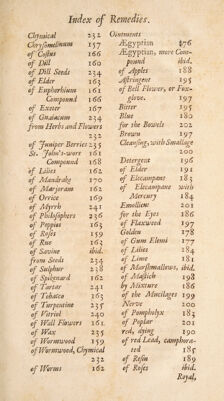 Index of Remedies.
Chymical 232
Chrysomelinum 157
of Costus 166
of Dill 160
of Dill Seeds 234
of Elder 163
of Euphorbium 161
Compound 166
of Exeter 167
of Guaiacum 234
from Herbs and Flowers
232
of Juniper Berries 235
St. John's-wort 161
Compound 168
of Lilies 162
of Mandrake 170
of Marjoram 162
of Orrice 169
of Myrrh 241
of Philosophers 236
of Poppies 163
of Roses 159
of Rue 163
of Savine ibid.
from Seeds 234
of Sulphur 238
of Spikenard 162
of Tartar 241
of Tobacco 163
of Turpentine 235
of Vitriol 240
of Wall Flowers 161
of Wax 235
of Wormwood 159
of Wormwood, Chymical
232
of Worms 162
Ointments
Ægyptian 176
Ægyptian, more Com-
pound ibid.
of Apples 188
Astringent 195
of Bell Flower, or Fox-
glove. 197
Bitter 195
Blue 180
for the Bowels 202
Brown 197
Cleansing, with Smallage
200
Detergent 196
of Elder 191
of Elecampane 183
of Elecampane with
Mercury 184
Emollient 201
for the Eyes 186
of Flaxweed 197
Golden 178
of Gum Elemi 177
of Lilies 184
of Lime 181
of Marshmallows, ibid.
of Mastich 198
by Mixture 186
of the Mucilages 199
Nerve 200
of Pompholyx 183
of Poplar 201
red, drying 190
of red Lead, camphora-
ted 185
of Rosin 189
of Roses ibid.
Royal,